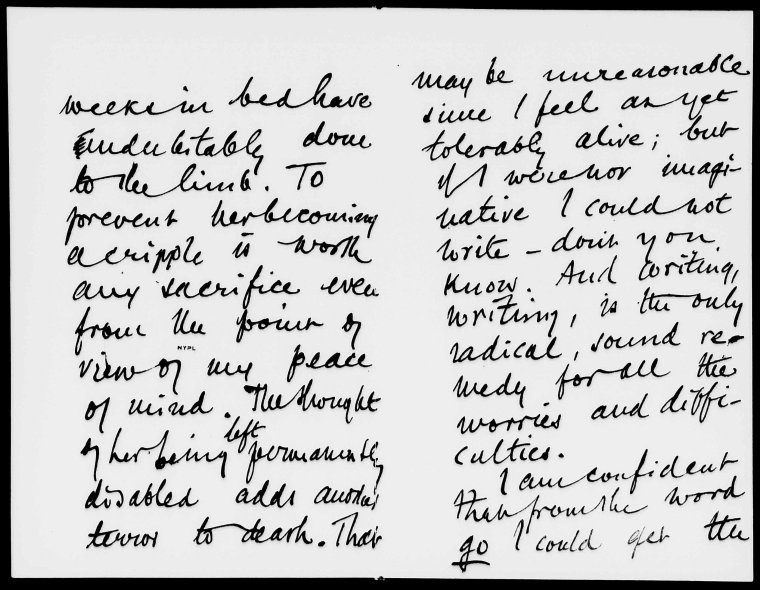 weeks in bed have
undubitably done
to the limb. To
prevent her becoming
a cripple is worth
any sacrifice even
from the point of
view of my peace
NYPL
of mind. The thought
of her being left permanently
disabled adds another
terror to death. That
may be unreasonable
since I feel as yet
tolerably alive; but
if I were not imagi-
native I could not
write – don't you
know. And writing,
writing, is the only
radical, sound re-
medy for all the
worries and diffi-
culties.
I am confident
that from the word
go I could get the